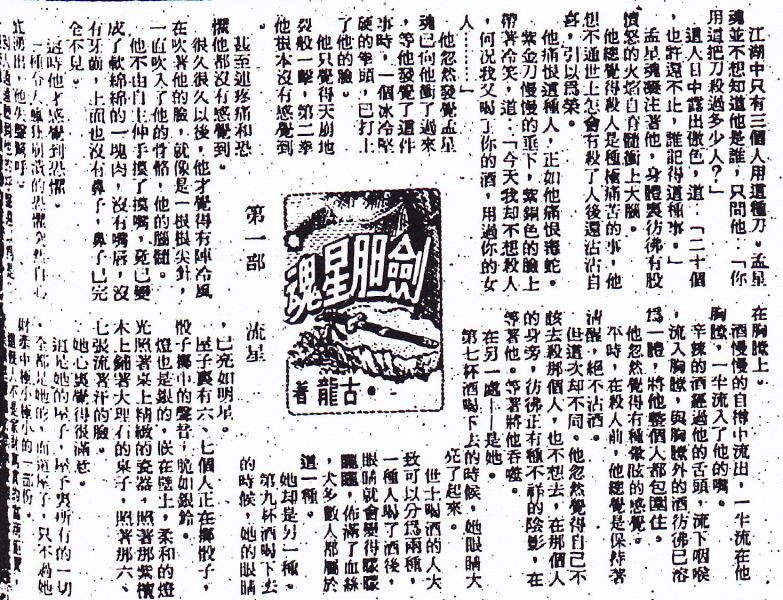 江湖中只有三個人用這種刀。孟星
魂並不想知道他是誰,只問他:「你
用這把刀殺過多少人?」
這人目中露出傲色,道:「二十個
,也許還不止,誰記得這種事。」
孟星魂凝注著他,身體裏彷彿有股
憤怒的火焰自脊髓衝上大腦。
他總覺得殺人是種極痛苦的事,他
想不通世上怎會有殺了人後還沾沾自
喜,引以爲榮。
他痛恨這種人,正如他痛恨毒蛇。
紫金刀慢慢的垂下,紫銅色的臉上
帶著冷笑,道:「今天我却不想殺人
,何況我又喝了你的酒,用過你的女
人……」
他忽然發覺孟星
魂已向他衝了過來
,等他發覺了這件
事時,一個冰冷堅
硬的拳頭,已打上
了他的臉。
他只覺得天崩地
裂般一擊,第二拳
他根本沒有感覺到
。
甚至連疼痛和恐
懼他都沒有感覺到。
很久很久以後,他才覺得有陣冷風
在吹著他的臉,就像是一根根尖針,
一直吹入了他的骨骼,他的腦髓。
他不由自主伸手摸了摸嘴,竟已變
成了軟綿綿的一塊肉,沒有嘴唇,沒
有牙齒,上面也沒有鼻子,鼻子已完
全不見。
這時他才感覺到恐懼。
一種令人瘋狂崩潰的恐懼突然自心
底湧出,他失聲驚呼。
劍胆星魂
古龍・著
第一部 流星
在胸膛上。
酒慢慢的自樽中流出,一半流在他
胸膛,一半流入了他的嘴。
辛辣的酒經過他的舌頭,流下咽喉
,流入胸膛,與胸膛外的酒彷彿已溶
爲一體,將他整個人都包圍住。
他忽然覺得有種暈眩的感覺。
平時,在殺人前,他總覺是保持著
清醒,絕不沾酒。
但這次却不同。他忽然覺得自己不
該去殺那個人,也不想去,在那個人
的身旁,彷彿正有種不祥的陰影,在
等著他。等著將他吞噬。
在另一處——是她。
第七杯酒喝下去的時候,她眼睛大
亮了起來。
世上喝酒的人大
致可以分爲兩種,
一種人喝了酒後,
眼睛就會變得朦朦
朧朧,佈滿了血絲
,大多數人都屬於
這一種。
她却是另一種。
第九杯酒喝下去
的時候,她的眼睛
,已亮如明星。
屋子裏有六、七個人正在擲骰子,
骰子擲中的聲音,脆如銀鈴。
燈也是銀的,嵌在壁上,柔和的燈
光照著桌上精緻的瓷器,照著那紫檀
木上鋪著大理石的桌子,照著那六、
七張流著汗的臉。
她心裏覺得很滿意。
這是她的屋子,屋子裏所有的一切
,全都是她的,而這屋子,只不過她
財產中極小極小的一部份。